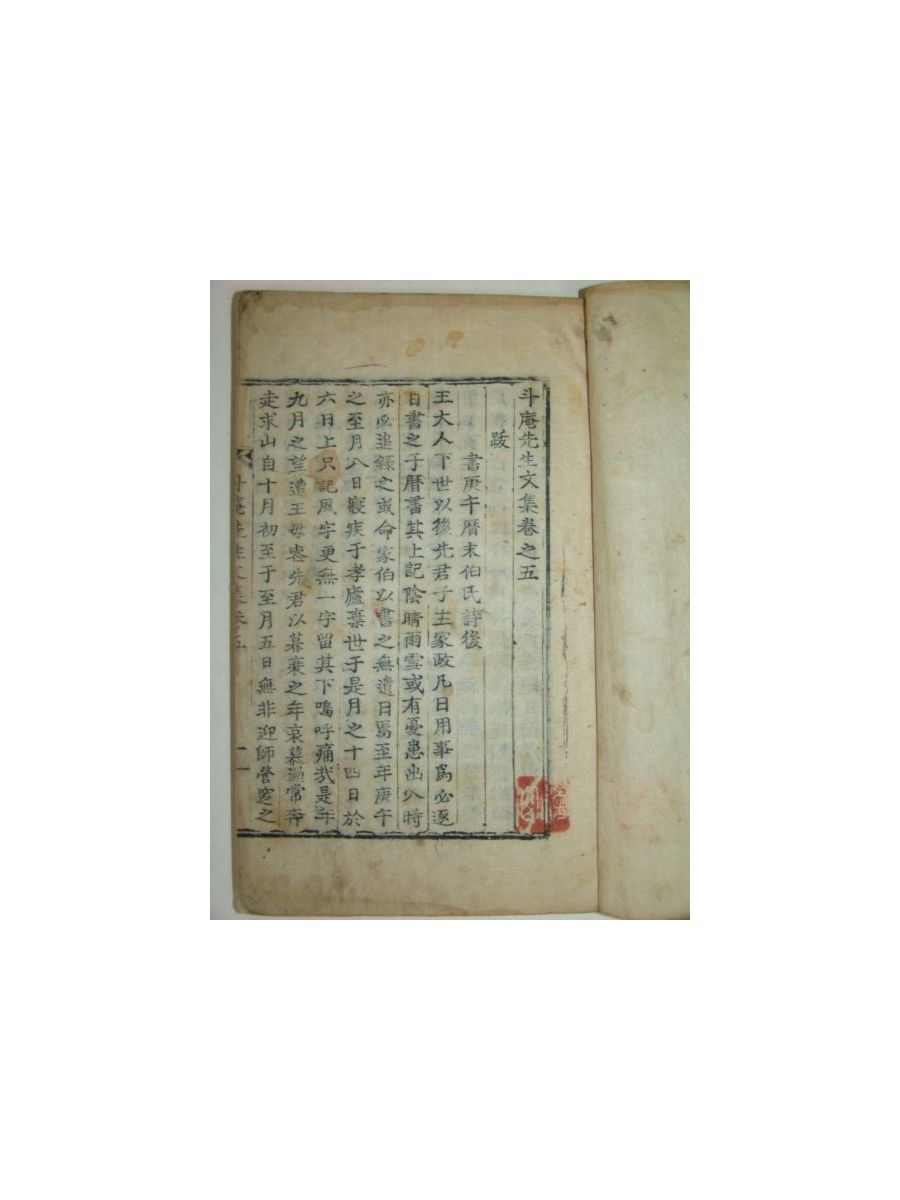 斗庵先生文集卷之五
跋
書庚午曆末伯氏詩後
王大人下世以後先君子主家政凡日用事爲必逐
日書之于曆書其上記陰晴雨雪或有憂患出入時
亦必追錄之或命家伯以書之無遺日焉至年庚午
之至月八日寢疾于孝廬棄世于是月之十四日於
六日上只記風字更無一字留其下嗚呼痛哉是年
九月之望遭王母喪先君以暮衰之年哀慕逾常奔
走求山自十月初至于至月五日無非迎師營窆之
斗庵先生文集卷五
一